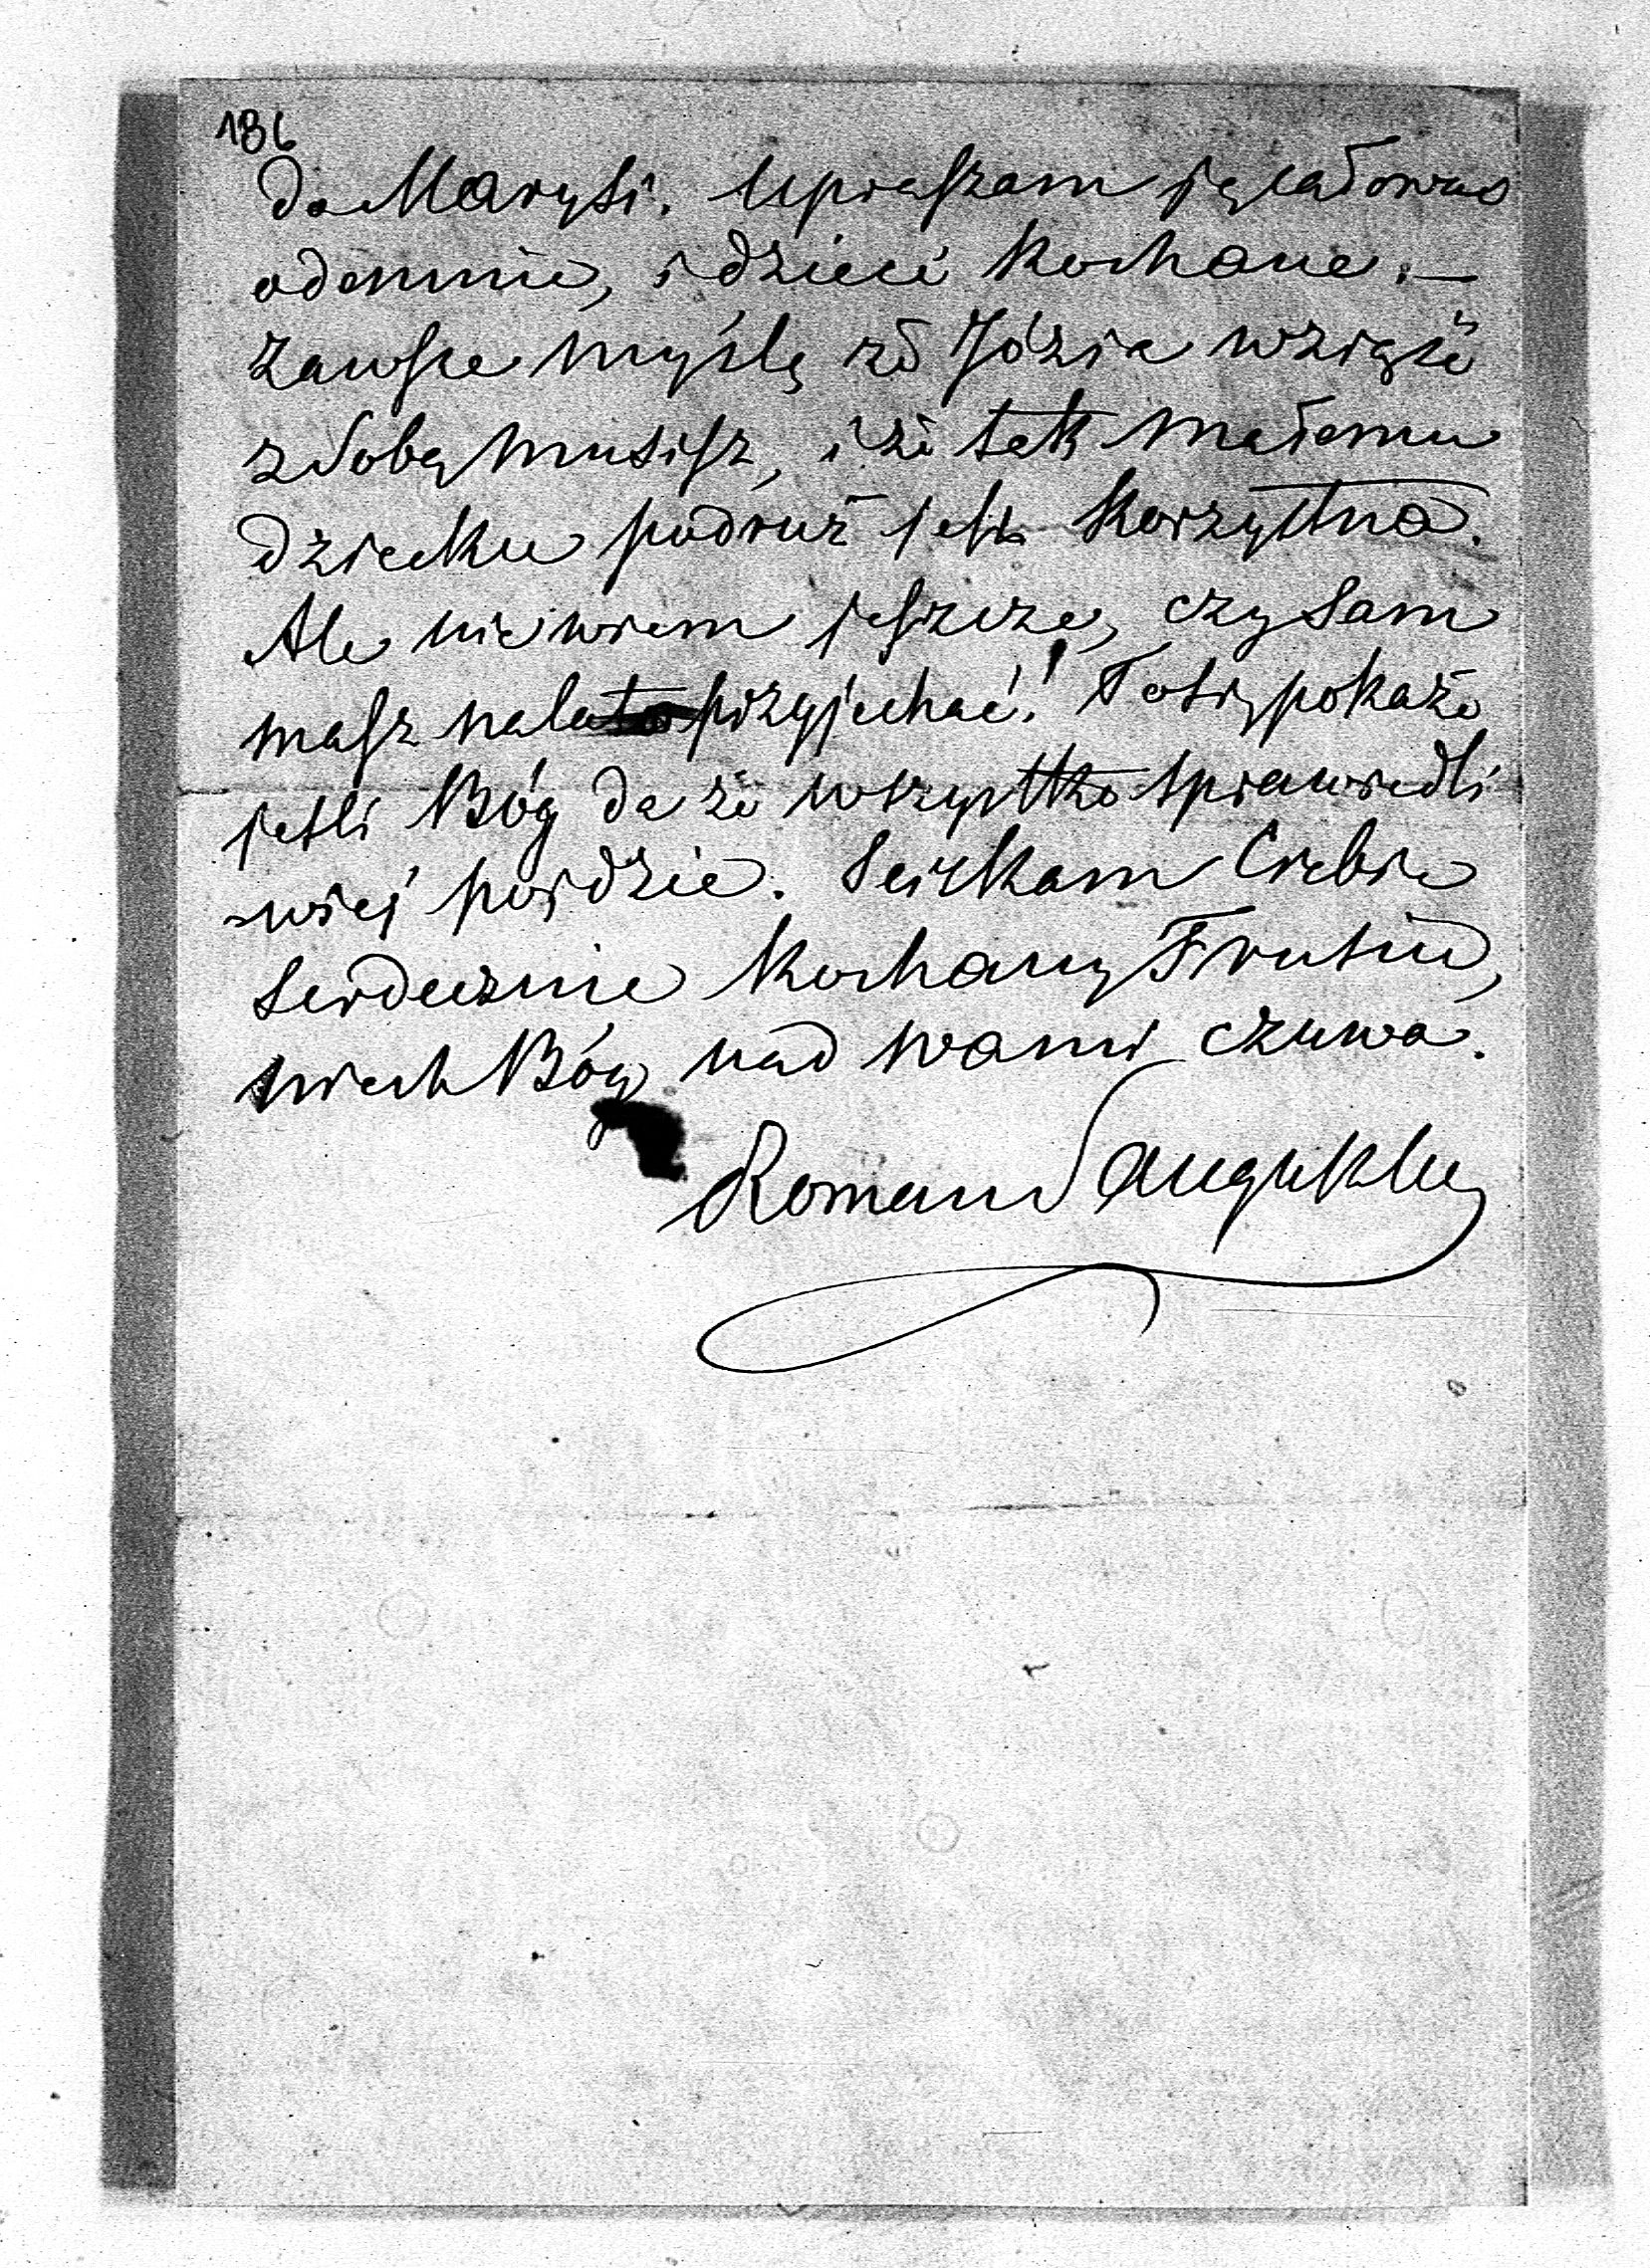 186
do Marysi. Upraszam ją całować
odemnie, i dzieci kochane. —
Zawsze myślę że Józia wziąść
z sobą musisz, i że tak małemu
dziecku podruż jest korzystna.
Ale nie wiem jeszcze, czy sam
masz na lato przyjechać! To się pokaże
jeśli Bóg da że wszystko sprawiedli
-wiej pójdzie. Sciskam Ciebie
serdecznie kochany Trusiu,
niech Bóg nad wami czuwa.
Roman Sanguszko